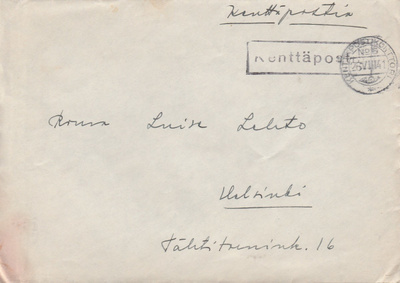 Kenttäpostia
Kenttäpost
Rouva Luise Lehto
Helsinki
Tähtitornink. 16